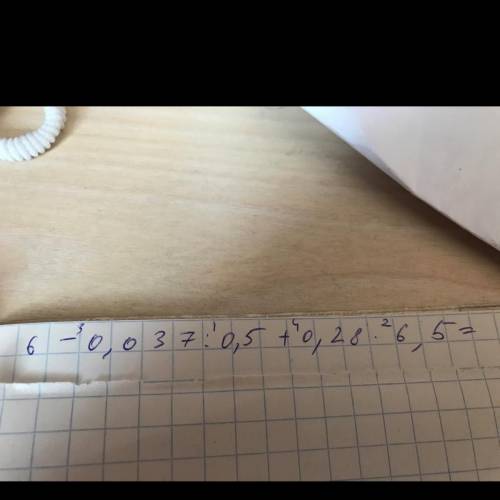 6 -³ 0,037 :¹ 0,5 +⁴ 0,28 ·² 6,5 =